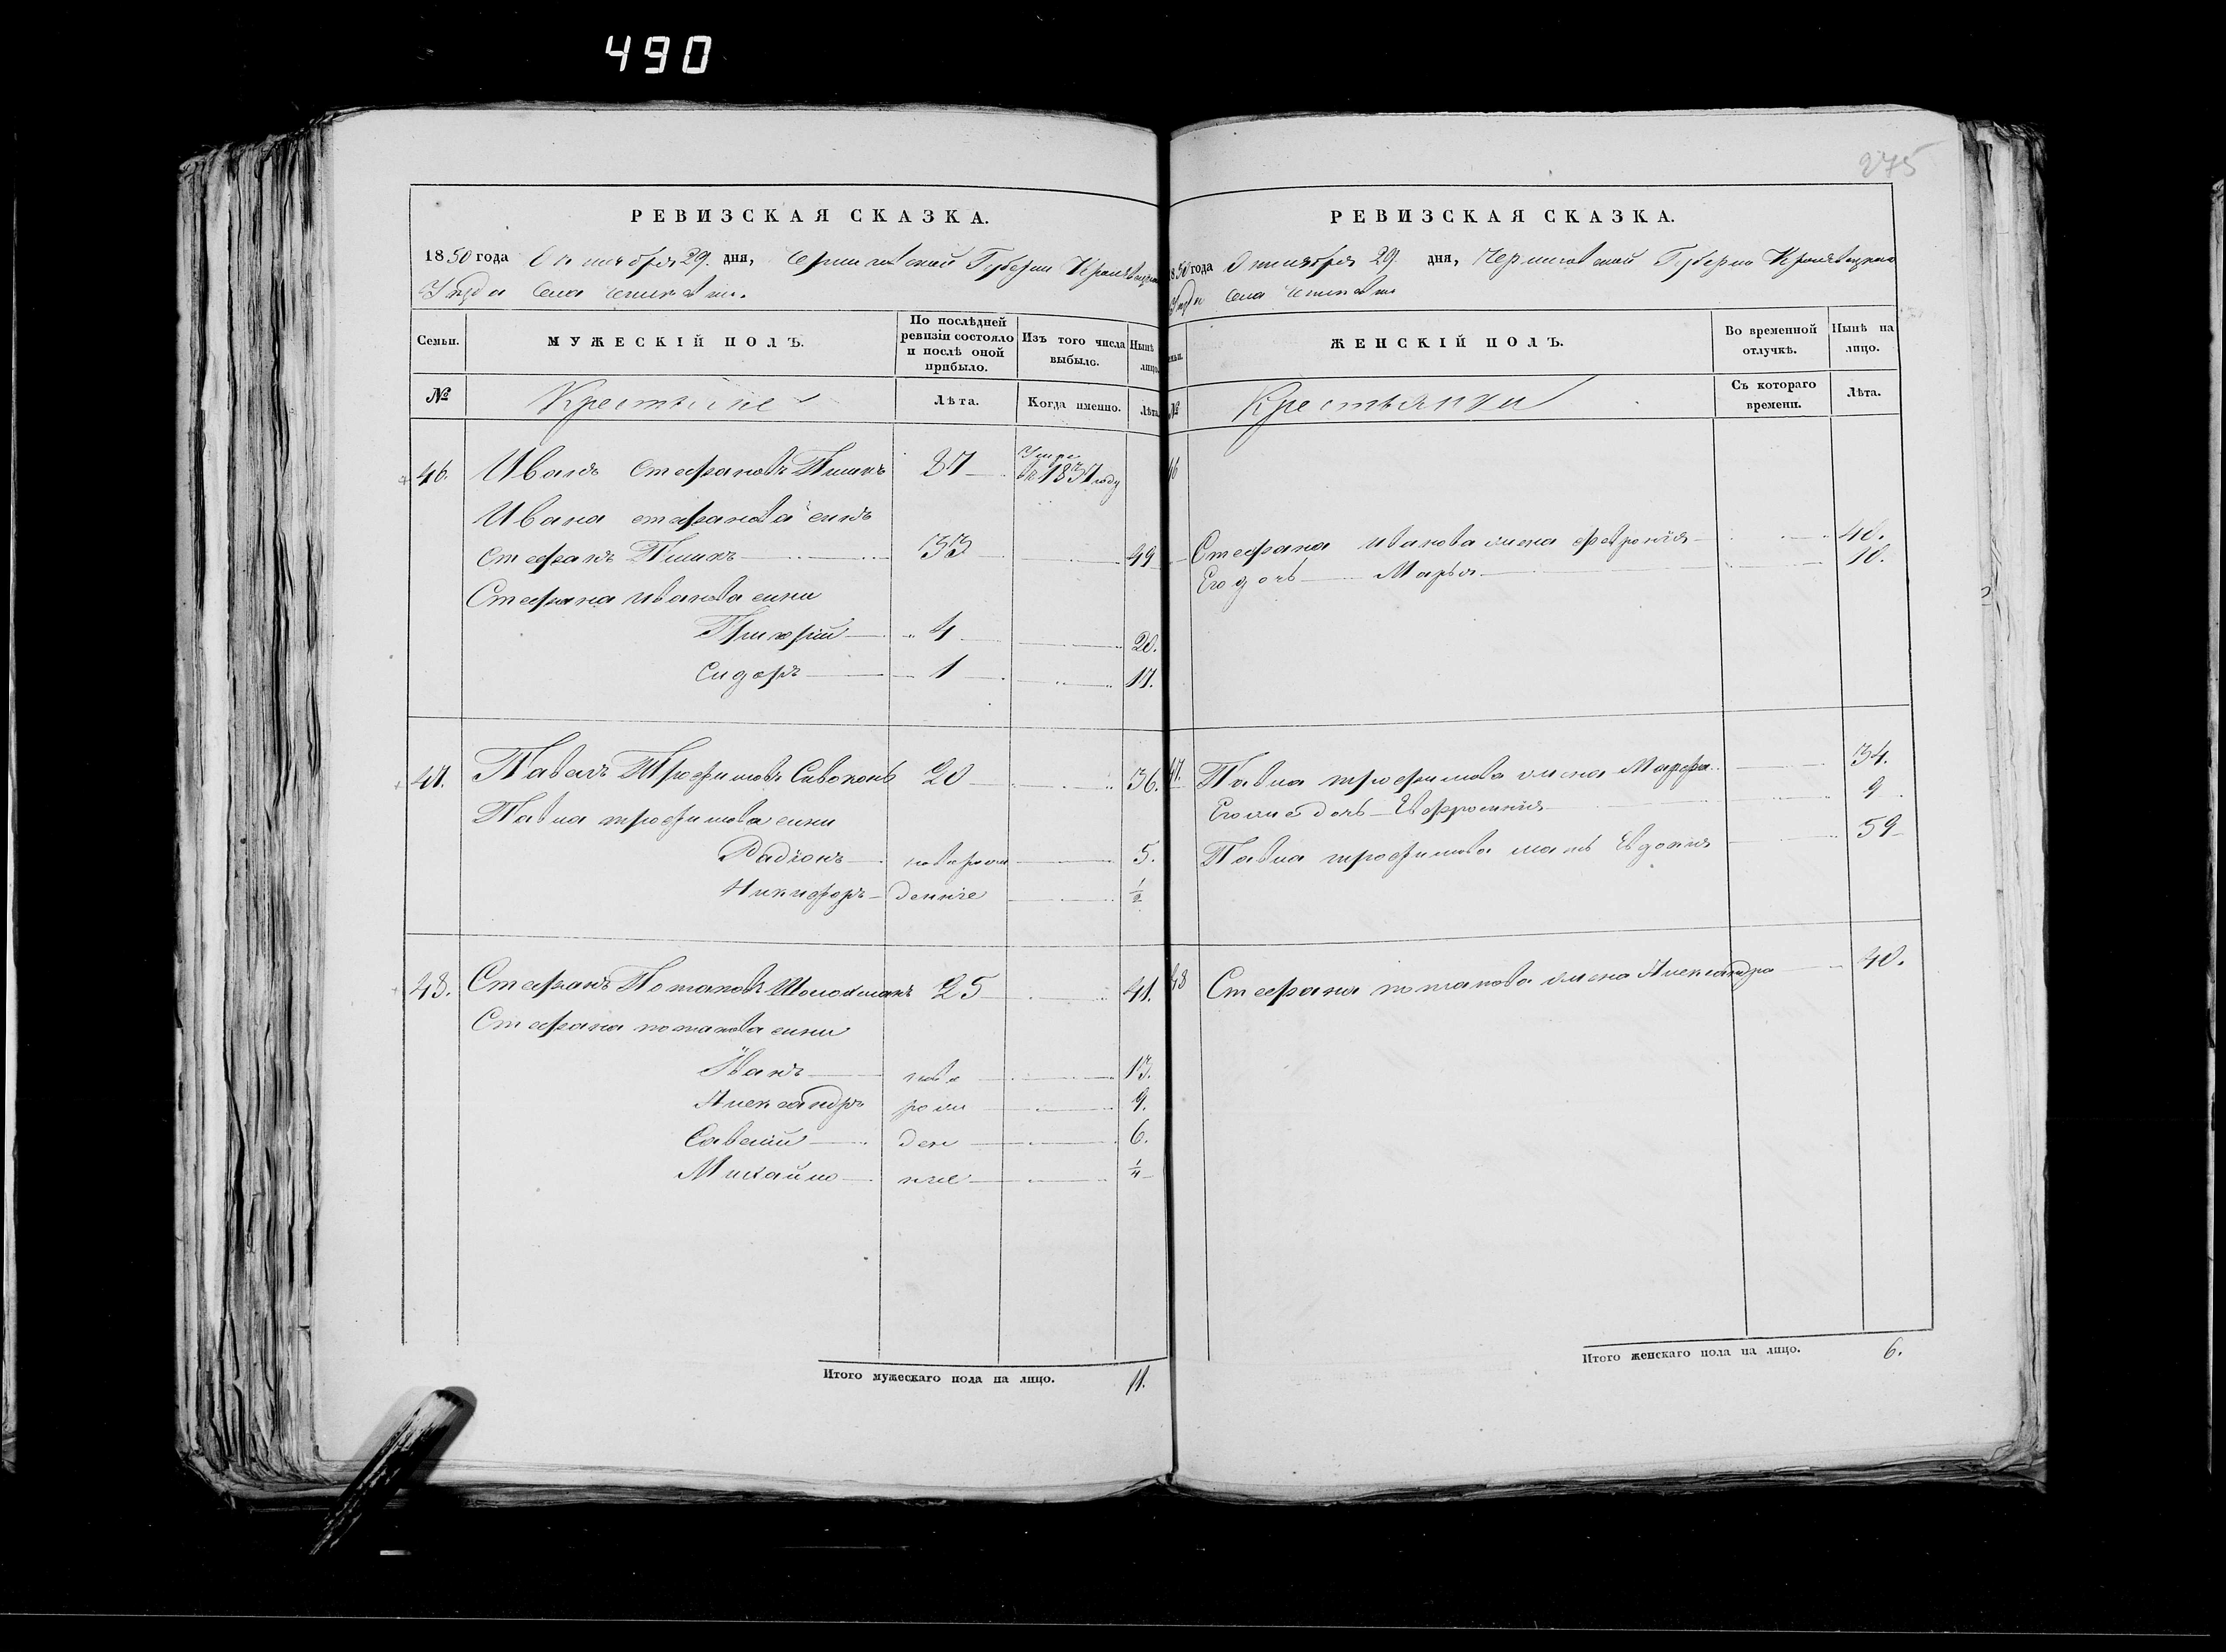 490
275
РЕВИЗСКАЯ СКАЗКА.
1850 года Октября 29. дня, Черниговской Губерни Кролевецкаго
Уезда Села
Семьи.
МУЖЕСКІЙ ПОЛЪ.
По послѣдней ревизіи состояло и послѣ оной прибыло.
Изъ того числа выбыло.
Нынѣ лицо
№
Крестьяне
Лѣта.
Когда именно.
Лѣта
46. Иванъ Стефановъ 37 Умре въ 1837 году
Ивана стефанова сынъ
Стефанъ 33 49
Стефана иванова сыны
Григорій 4 20.
Сидоръ 1 17.
47. Павелъ Трофимовъ Сивоконь 20 36.
Павла трофимова сыны
Радіонъ новорож 5.
Никифоръ деннiе 1/2
48. Стефанъ Потаповъ 25 41.
Стефана потапова сыны
Иванъ ново 13.
Александръ рож 9.
Савелій ден 6.
Михайло ніе 1/4
Итого мужескаго пола на лицо. 11.
РЕВИЗСКАЯ СКАЗКА.
1850 года Октября 29. дня, Черниговской Губерни Кролевецкаго
Уезда Села
ЖЕНСКІЙ ПОЛЪ.
Во временной отлучкѣ.
Нынѣ на лицо.
№
Крестьянки
Съ котораго времени.
Лѣта.
46
Стефана иванова жена февронія 40.
Его дочь Марья 10.
47. Павла трофимова жена Марфа 34.
Его же дочь Ефросинія 9
Павла трофимова мать Евдокія 59
48 Стефана потапова жена Александра 40.
Итого женскаго пола на лицо. 6.